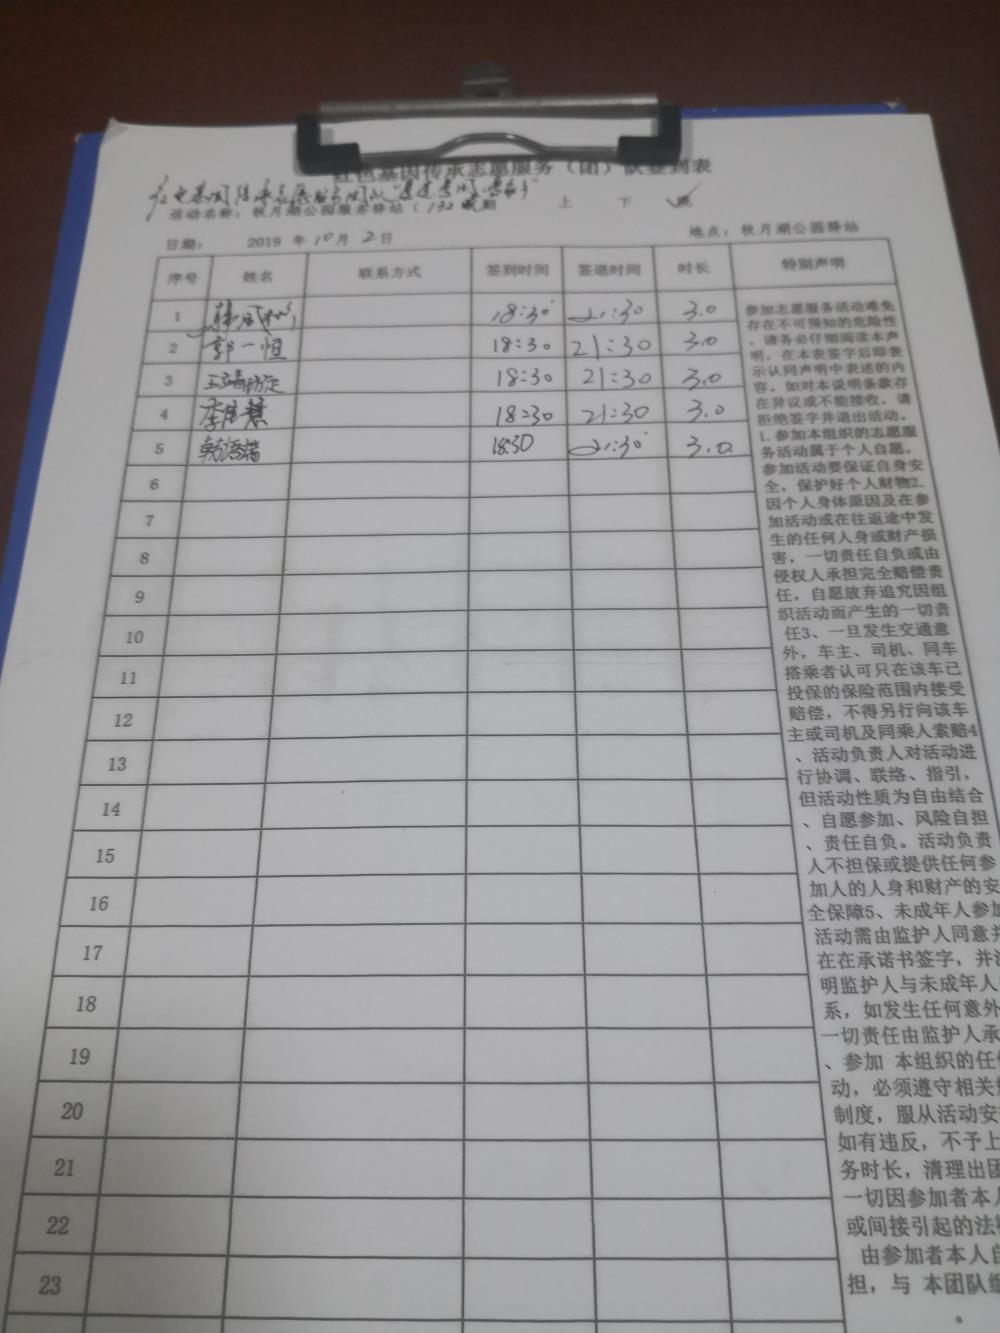 红色基因传承志愿服务（团）队签到表
活动名称：秋月湖公园服务驿站（132 期 上 下
日期： 2019 年 10 月 2 日 地点：秋月湖公园驿站
序号 姓名 联系方式 签到时间 签退时间 时长 特别声明
1 18:30 21:30 3.0
2 郭一恒 18:30 21:30 3.0
3 18:30 21:30 3.0
4 18:30 21:30 3.0
5 18:30 21:30 3.0
6
7
8
9
10
11
12
13
14
15
16
17
18
19
20
21
22
23
参加志愿服务活动难免
存在不可预知的危险性
，请务必仔细阅读本声
明，在本表签字后即表
示认同声明中表述的内
容。如对本说明条款存
在异议或不能接收，请
拒绝签字并退出活动。
1.参加本组织的志愿服
务活动属于个人自愿，
参加活动要保证自身安
全，保护好个人财物2.
因个人身体原因及在参
加活动或在往返途中发
生的任何人身或财产损
害，一切责任自负或由
侵权人承担完全赔偿责
任，自愿放弃追究因组
织活动而产生的一切责
任3、一旦发生交通意
外，车主、司机、同车
搭乘者认可只在该车已
投保的保险范围内接受
赔偿，不得另行向该车
主或司机及同乘人索赔4
、活动负责人对活动进
行协调、联络、指引，
但活动性质为自由结合
、自愿参加、风险自担
、责任自负。活动负责
人不担保或提供任何参
加人的人身和财产的安
全保障5、未成年人参加
活动需由监护人同意并
在在承诺书签字，并注
明监护人与未成年人
系，如发生任何意外
一切责任由监护人承
、参加 本组织的任
动，必须遵守相关
制度，服从活动安
如有违反，不予上
务时长，清理出团
一切因参加者本人
或间接引起的法
由参加者本人自
担，与 本团队组